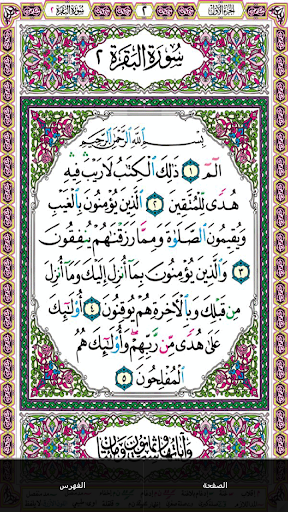 سورة البقرة ٢
٢
الجزء الأول
سُورَةُ البَقَرَةِ ٢
بِسْمِ اللَّهِ الرَّحْمَٰنِ الرَّحِيمِ
الٓمٓ ١ ذَٰلِكَ ٱلْكِتَٰبُ لَا رَيْبَ فِيهِ
هُدًى لِّلْمُتَّقِينَ ٢ ٱلَّذِينَ يُؤْمِنُونَ بِٱلْغَيْبِ
وَيُقِيمُونَ ٱلصَّلَوٰةَ وَمِمَّا رَزَقْنَٰهُمْ يُنفِقُونَ
٣ وَٱلَّذِينَ يُؤْمِنُونَ بِمَآ أُنزِلَ إِلَيْكَ وَمَآ أُنزِلَ
مِن قَبْلِكَ وَبِٱلْءَاخِرَةِ هُمْ يُوقِنُونَ ٤ أُو۟لَٰٓئِكَ
عَلَىٰ هُدًى مِّن رَّبِّهِمْ وَأُو۟لَٰٓئِكَ هُمُ
ٱلْمُفْلِحُونَ ٥
وَآيَاتُهَا سِتٌّ وَثَمَانُونَ وَمِائَتَانِ
الصفحة
الفهرس